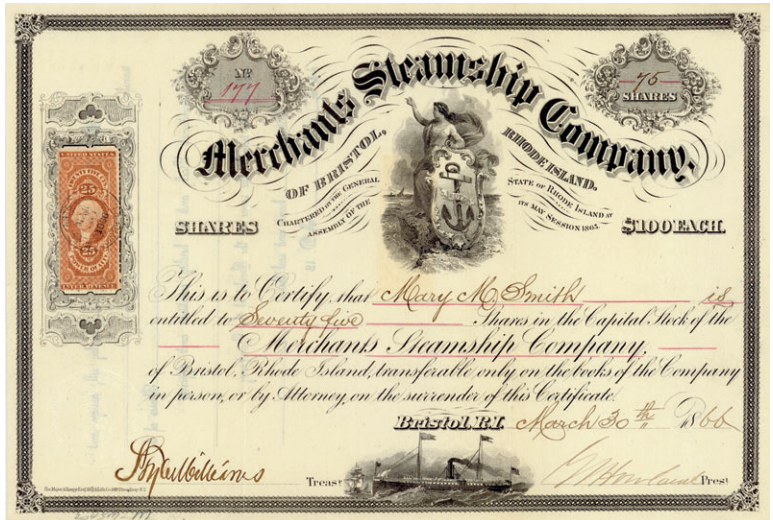 No
177
75
SHARES
Merchants Steamship Company.
OF BRISTOL, RHODE ISLAND.
CHARTERED BY THE GENERAL ASSEMBLY OF THE STATE OF RHODE ISLAND AT ITS MAY SESSION 1865.
SHARES $100 EACH.
UNITED STATES
25
25
POWER OF ATT'Y
INTER. REVENUE
This is to Certify, that Mary M. Smith is
entitled to Seventy five Shares in the Capital Stock of the
Merchants Steamship Company,
of Bristol, Rhode Island, transferable only on the books of the Company
in person, or by Attorney, on the surrender of this Certificate.
Bristol, R.I. March 30th 1866
Treast Prest